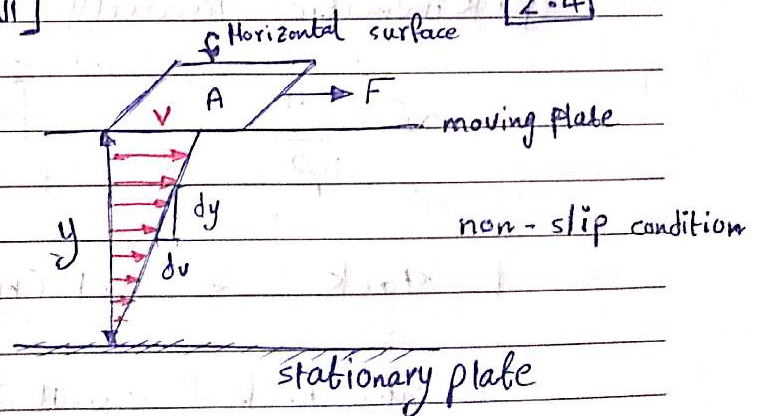 2.4
Horizontal surface
A
F
V
moving plate
dy
y
non-slip condition
du
stationary plate